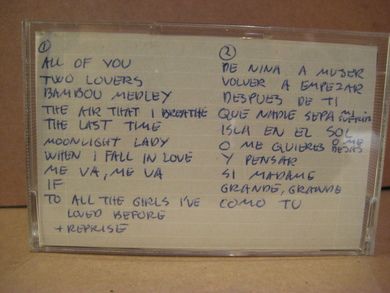 1
ALL OF YOU
TWO LOVERS
BAMBOU MEDLEY
THE AIR THAT I BREATHE
THE LAST TIME
MOONLIGHT LADY
WHEN I FALL IN LOVE
ME VA, ME VA
IF
TO ALL THE GIRLS I'VE
LOVED BEFORE
+ REPRISE
2
DE NINA A MUJER
VOLVER A EMPEZAR
DESPUES DE TI
QUE NADIE SEPA MI SUFRIR
ISLA EN EL SOL
O ME QUIERES O ME DEJAS
Y PENSAR
SI MADAME
GRANDE, GRANDE
COMO TU